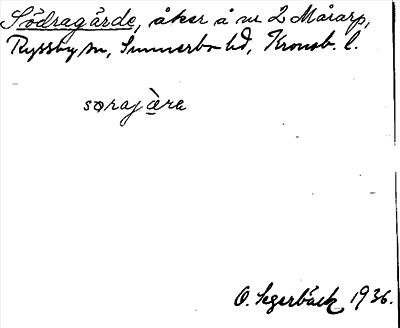 Södragärde, åker å nr 2 Målarp,
Ryssby sn, Sunnerbo hd, Kronob. l.
sørajæ̀ra
O. Segerbäck 1936.